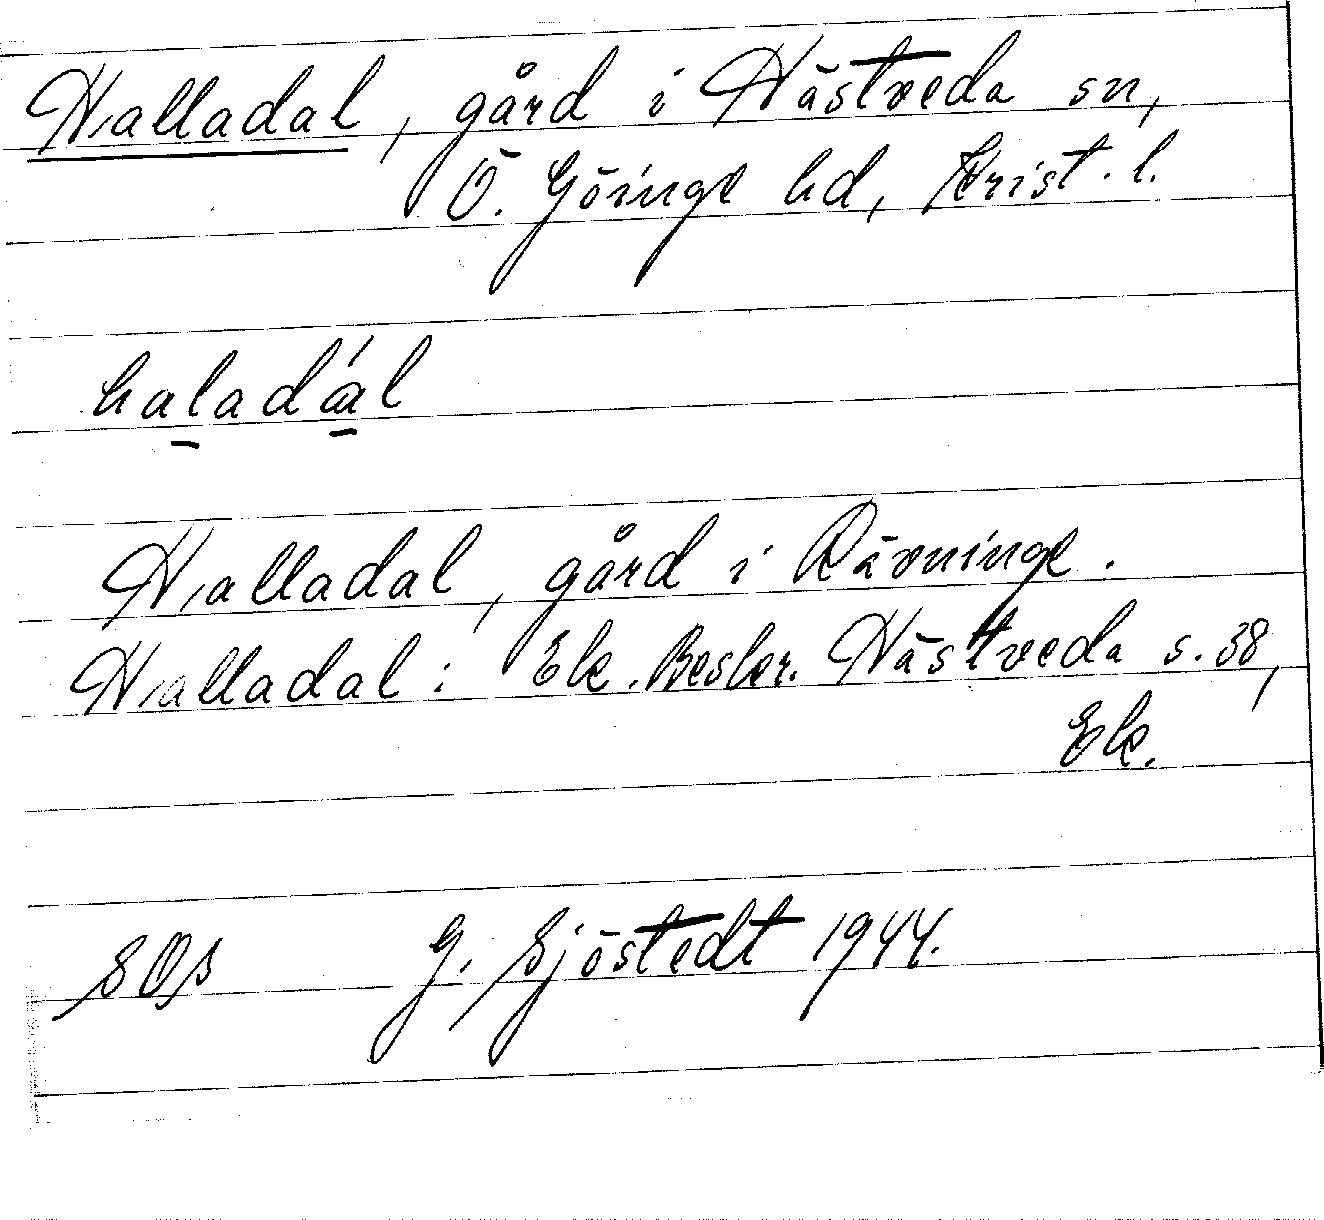 Halladal, gård i Hästveda sn,
Ö. Göinge hd, Krist. l.
haladál
Halladal, gård i Rävninge.
Halladal: Ek. Beskr. Hästveda s. 38,
Ek.
SOS G. Sjöstedt 1944.